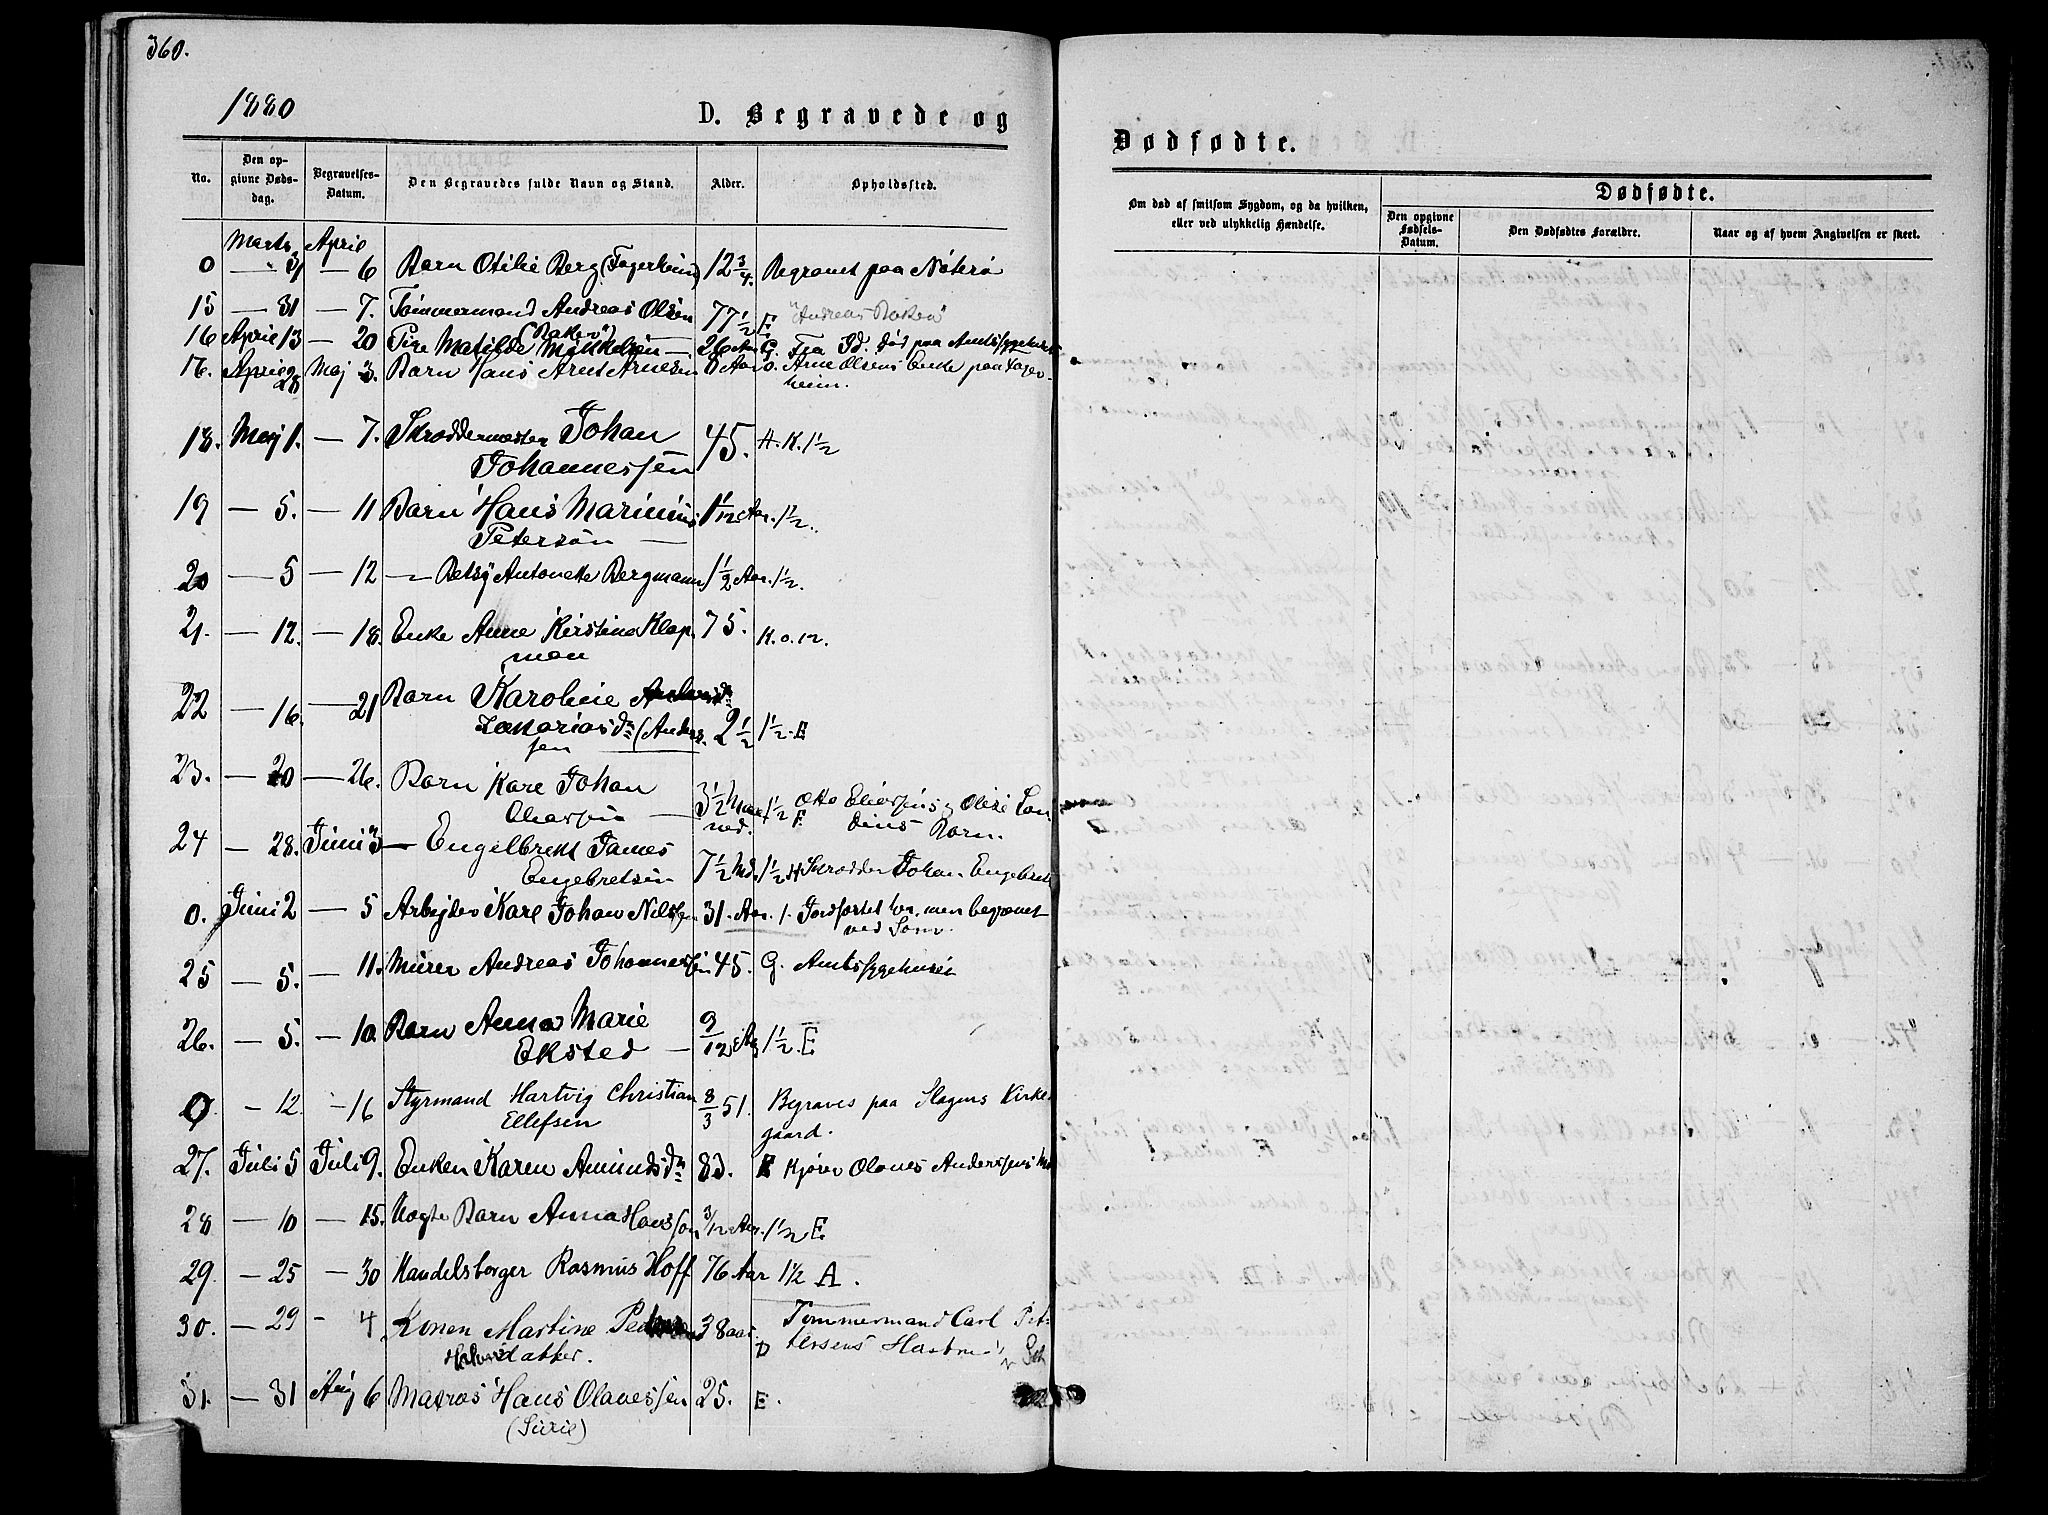 360.
1880
D. Begravede og
Dødfødte.
No.
Den opgivne Dødsdag.
Begravelses-Datum.
Den Begravedes fulde Navn og Stand.
Alder.
Opholdssted.
Om død af smitsom Sygdom, og da hvilken, eller ved ulykkelig Hændelse.
Dødfødte.
Den opgivne Fødsels-Datum.
Den Dødfødtes Forældre.
Naar og af hvem Angivelsen er skeet.
Marts April
0 — 31 — 6 Barn Otilie Berg (Fagerheim) 12 3/4. Begravet paa Nøterø
15 — 31 — 7. Tømmermand Andreas Olsen 77 1/2 E "Andreas Baken"
(Baken")
16 April 13 — 20 Pige Matilde Mikkelsen — 26 Aar G. Fra Id. død paa Amtssygehuset
16. April 28 Maj 3. Barn Hans Arnt Arnesen 8 Aar 0. Arne Olsens Enke paa Fager-
heim.
18. Maj 1. — 7. Skræddermester Johan 45. H. K. 1 1/2
Johannessen
19 — 5. — 11 Barn Hans Marinius 1 1/12 Aar. 1 1/2.
Petersøn —
20 — 5 — 12 — Betsy Antonette Bergmann 1 1/2 Aar. 1 1/2.
21. — 12. — 18. Enke Anne Kirstine Klap- 75. K. o. 12.
man
22 — 16. — 21 Barn Karoline
Zakariasdr (Anders- 2 1/2 1 1/2. E
sen
23. — 20 — 26. Barn Karl Johan
3 1/2 Maa- 1 1/2 Otto
ned. E Barn.
24 — 28. Juni 3 — Engelbrekt James
Engebretsen 7 1/2 Md. 1 1/2 H Skrædder Johan Engebret
0. Juni 2 — 5 Arbejder Karl Johan Nilssen 31. Aar. 1. Jordfæstet her, men begravet
ved Sem.
25 — 5. — 11. Murer Andreas Johannessen 45. G. Amtssygehuset
26. — 5. — 10. Barn Anna Marie 9/12 1 1/2. E
Eksted —
0 — 12. — 16 Styrmand Hartvig Christian 8/3 51. Begraves paa Slagens Kirke-
Ellefsen gaard.
27. Juli 5 Juli 9. Enken Karen Amundsdr 83. E Kjører Olaves Anderssens
28 — 10 — 15. Uægte Barn Anna Hanssen 3/12 Aar. 1 1/2 E
29. — 25 — 30 Handelsborger Rasmus Hoff 76 Aar 1 1/2 A.
30. — 29 - 4 Konen Martine 38 aar. Tømmermand Carl Pet-
datter. D tersens Hustru
31. — 31 Aug 6 Matros Hans Olavessen 25. E.